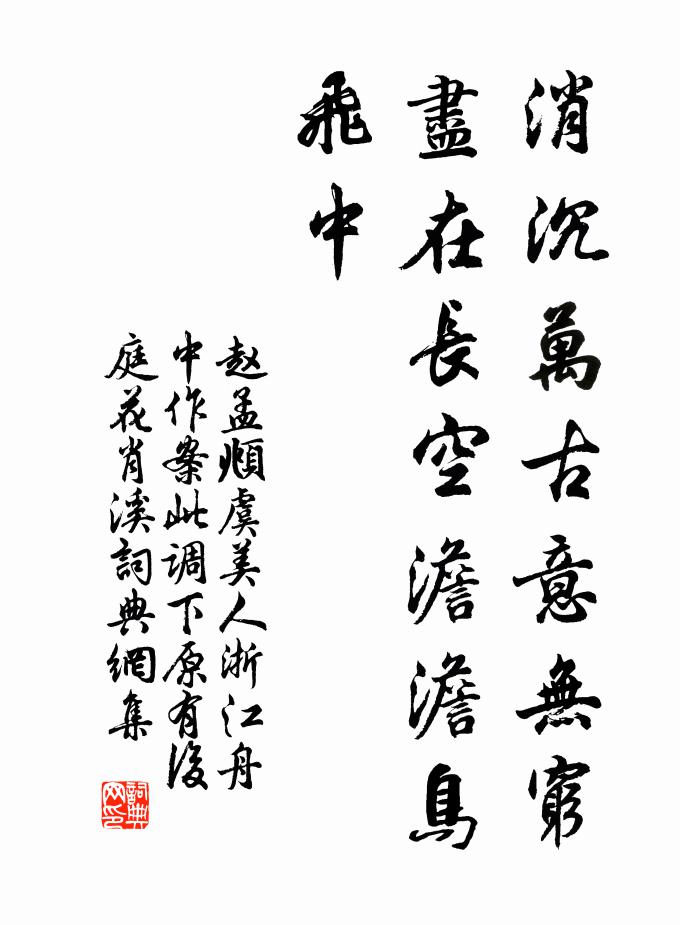 消沉萬古意無窮
盡在長空澹澹鳥
飛中
赵孟頫虞美人浙江舟
中作案此调下原有後
庭花肖溪詞典網集
詞典
网印